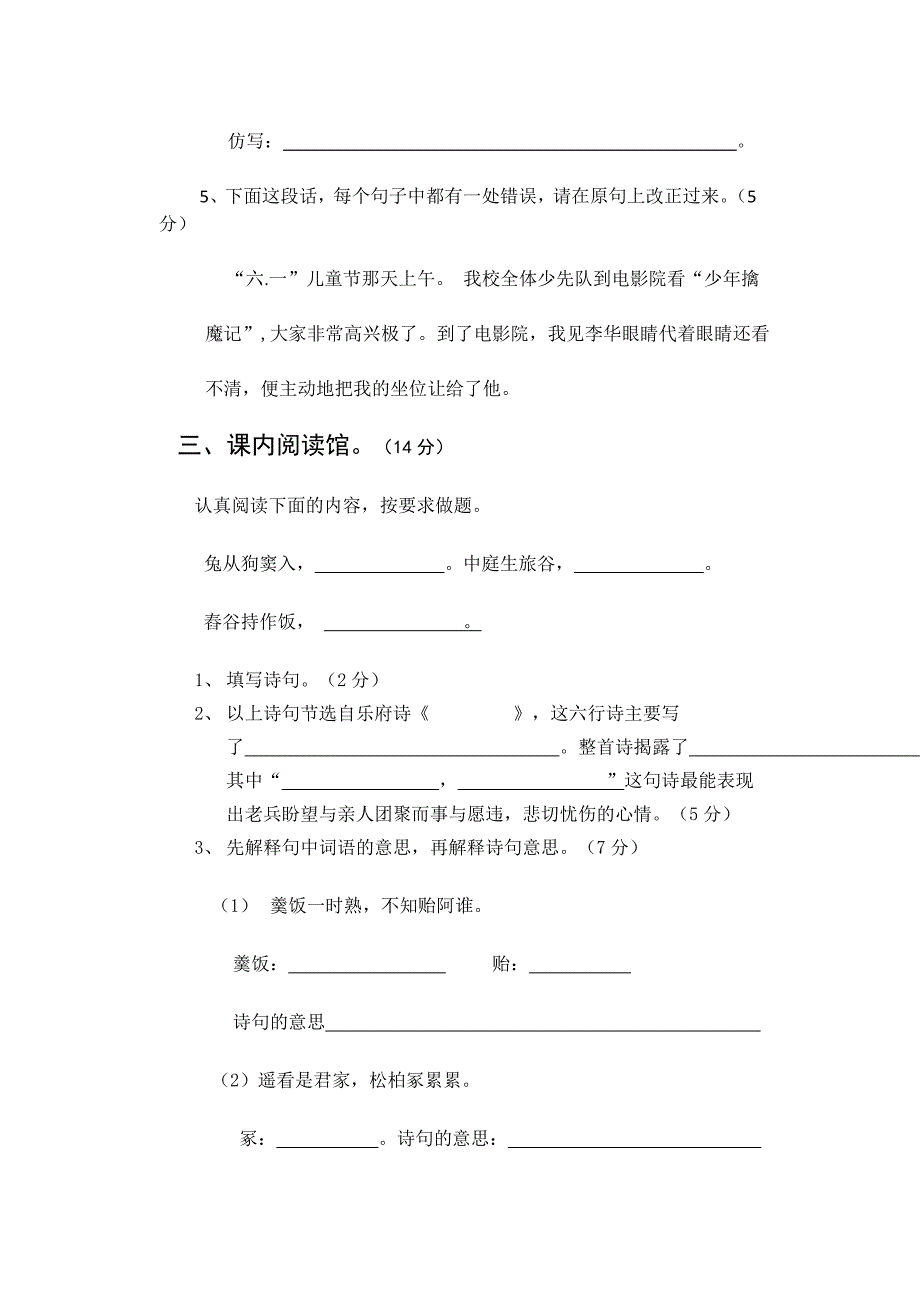 仿写：________________。
5、下面这段话，每个句子中都有一处错误，请在原句上改正过来。（5
分）
“六.一”儿童节那天上午。 我校全体少先队到电影院看“少年擒
魔记”,大家非常高兴极了。到了电影院，我见李华眼睛代着眼睛还看
不清，便主动地把我的坐位让给了他。
三、课内阅读馆。（14 分）
认真阅读下面的内容，按要求做题。
兔从狗窦入，________。中庭生旅谷，________。
舂谷持作饭， ________。
1、 填写诗句。（2 分）
2、 以上诗句节选自乐府诗《　　　　》，这六行诗主要写
了________________。整首诗揭露了____________
其中“________，________”这句诗最能表现
出老兵盼望与亲人团聚而事与愿违，悲切忧伤的心情。（5 分）
3、 先解释句中词语的意思，再解释诗句意思。（7 分）
（1） 羹饭一时熟，不知贻阿谁。
羹饭：________ 贻：______
诗句的意思________________
（2）遥看是君家，松柏冢累累。
冢：______。诗句的意思：____________